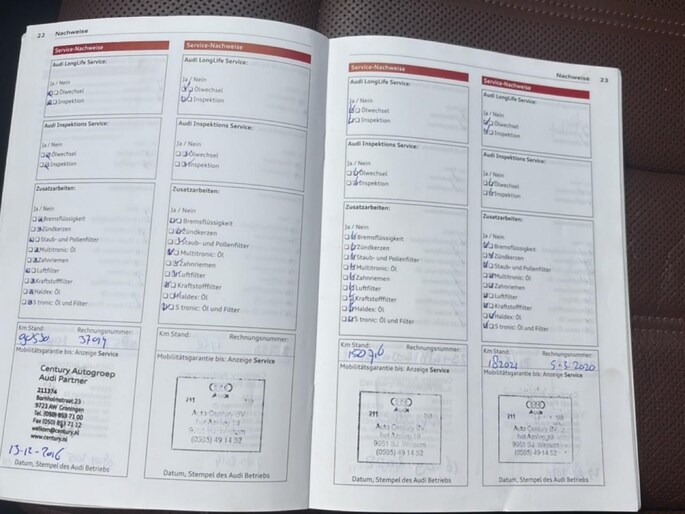 22 Nachweise
Service-Nachweise
Audi LongLife Service:
Ja / Nein
Ölwechsel
Inspektion
Audi Inspektions Service:
Ja / Nein
Ölwechsel
Inspektion
Zusatzarbeiten:
Ja / Nein
Bremsflüssigkeit
Zündkerzen
Staub- und Pollenfilter
Multitronic: Öl
Zahnriemen
Luftfilter
Kraftstofffilter
Haldex: Öl
S tronic: Öl und Filter
Km Stand: Rechnungsnummer:
90530 37094
Mobilitätsgarantie bis: Anzeige Service
Century Autogroep
Audi Partner
211374
Bornholmstraat 23
9723 AW Groningen
Tel. (050) 853 71 00
Fax (050) 853 71 12
www.century.nl
13-12-2016
Datum, Stempel des Audi Betriebs
Service-Nachweise
Audi LongLife Service:
Ja / Nein
Ölwechsel
Inspektion
Audi Inspektions Service:
Ja / Nein
Ölwechsel
Inspektion
Zusatzarbeiten:
Ja / Nein
Bremsflüssigkeit
Zündkerzen
Staub- und Pollenfilter
Multitronic: Öl
Zahnriemen
Luftfilter
Kraftstofffilter
Haldex: Öl
S tronic: Öl und Filter
Km Stand: Rechnungsnummer:
Mobilitätsgarantie bis: Anzeige Service
Audi
211
Auto Century BV
(0595) 49 14 52
Datum, Stempel des Audi Betriebs
Nachweise 23
Service-Nachweise
Audi LongLife Service:
Ja / Nein
Ölwechsel
Inspektion
Audi Inspektions Service:
Ja / Nein
Ölwechsel
Inspektion
Zusatzarbeiten:
Ja / Nein
Bremsflüssigkeit
Zündkerzen
Staub- und Pollenfilter
Multitronic: Öl
Zahnriemen
Luftfilter
Kraftstofffilter
Haldex: Öl
S tronic: Öl und Filter
Km Stand: Rechnungsnummer:
Mobilitätsgarantie bis: Anzeige Service
Audi
211
Auto Century BV
(0595) 49 14 52
Datum, Stempel des Audi Betriebs
Service-Nachweise
Audi LongLife Service:
Ja / Nein
Ölwechsel
Inspektion
Audi Inspektions Service:
Ja / Nein
Ölwechsel
Inspektion
Zusatzarbeiten:
Ja / Nein
Bremsflüssigkeit
Zündkerzen
Staub- und Pollenfilter
Multitronic: Öl
Zahnriemen
Luftfilter
Kraftstofffilter
Haldex: Öl
S tronic: Öl und Filter
Km Stand: Rechnungsnummer:
182021 5-3-2020
Mobilitätsgarantie bis: Anzeige Service
Audi
211
Auto Century BV
(0595) 49 14 52
Datum, Stempel des Audi Betriebs